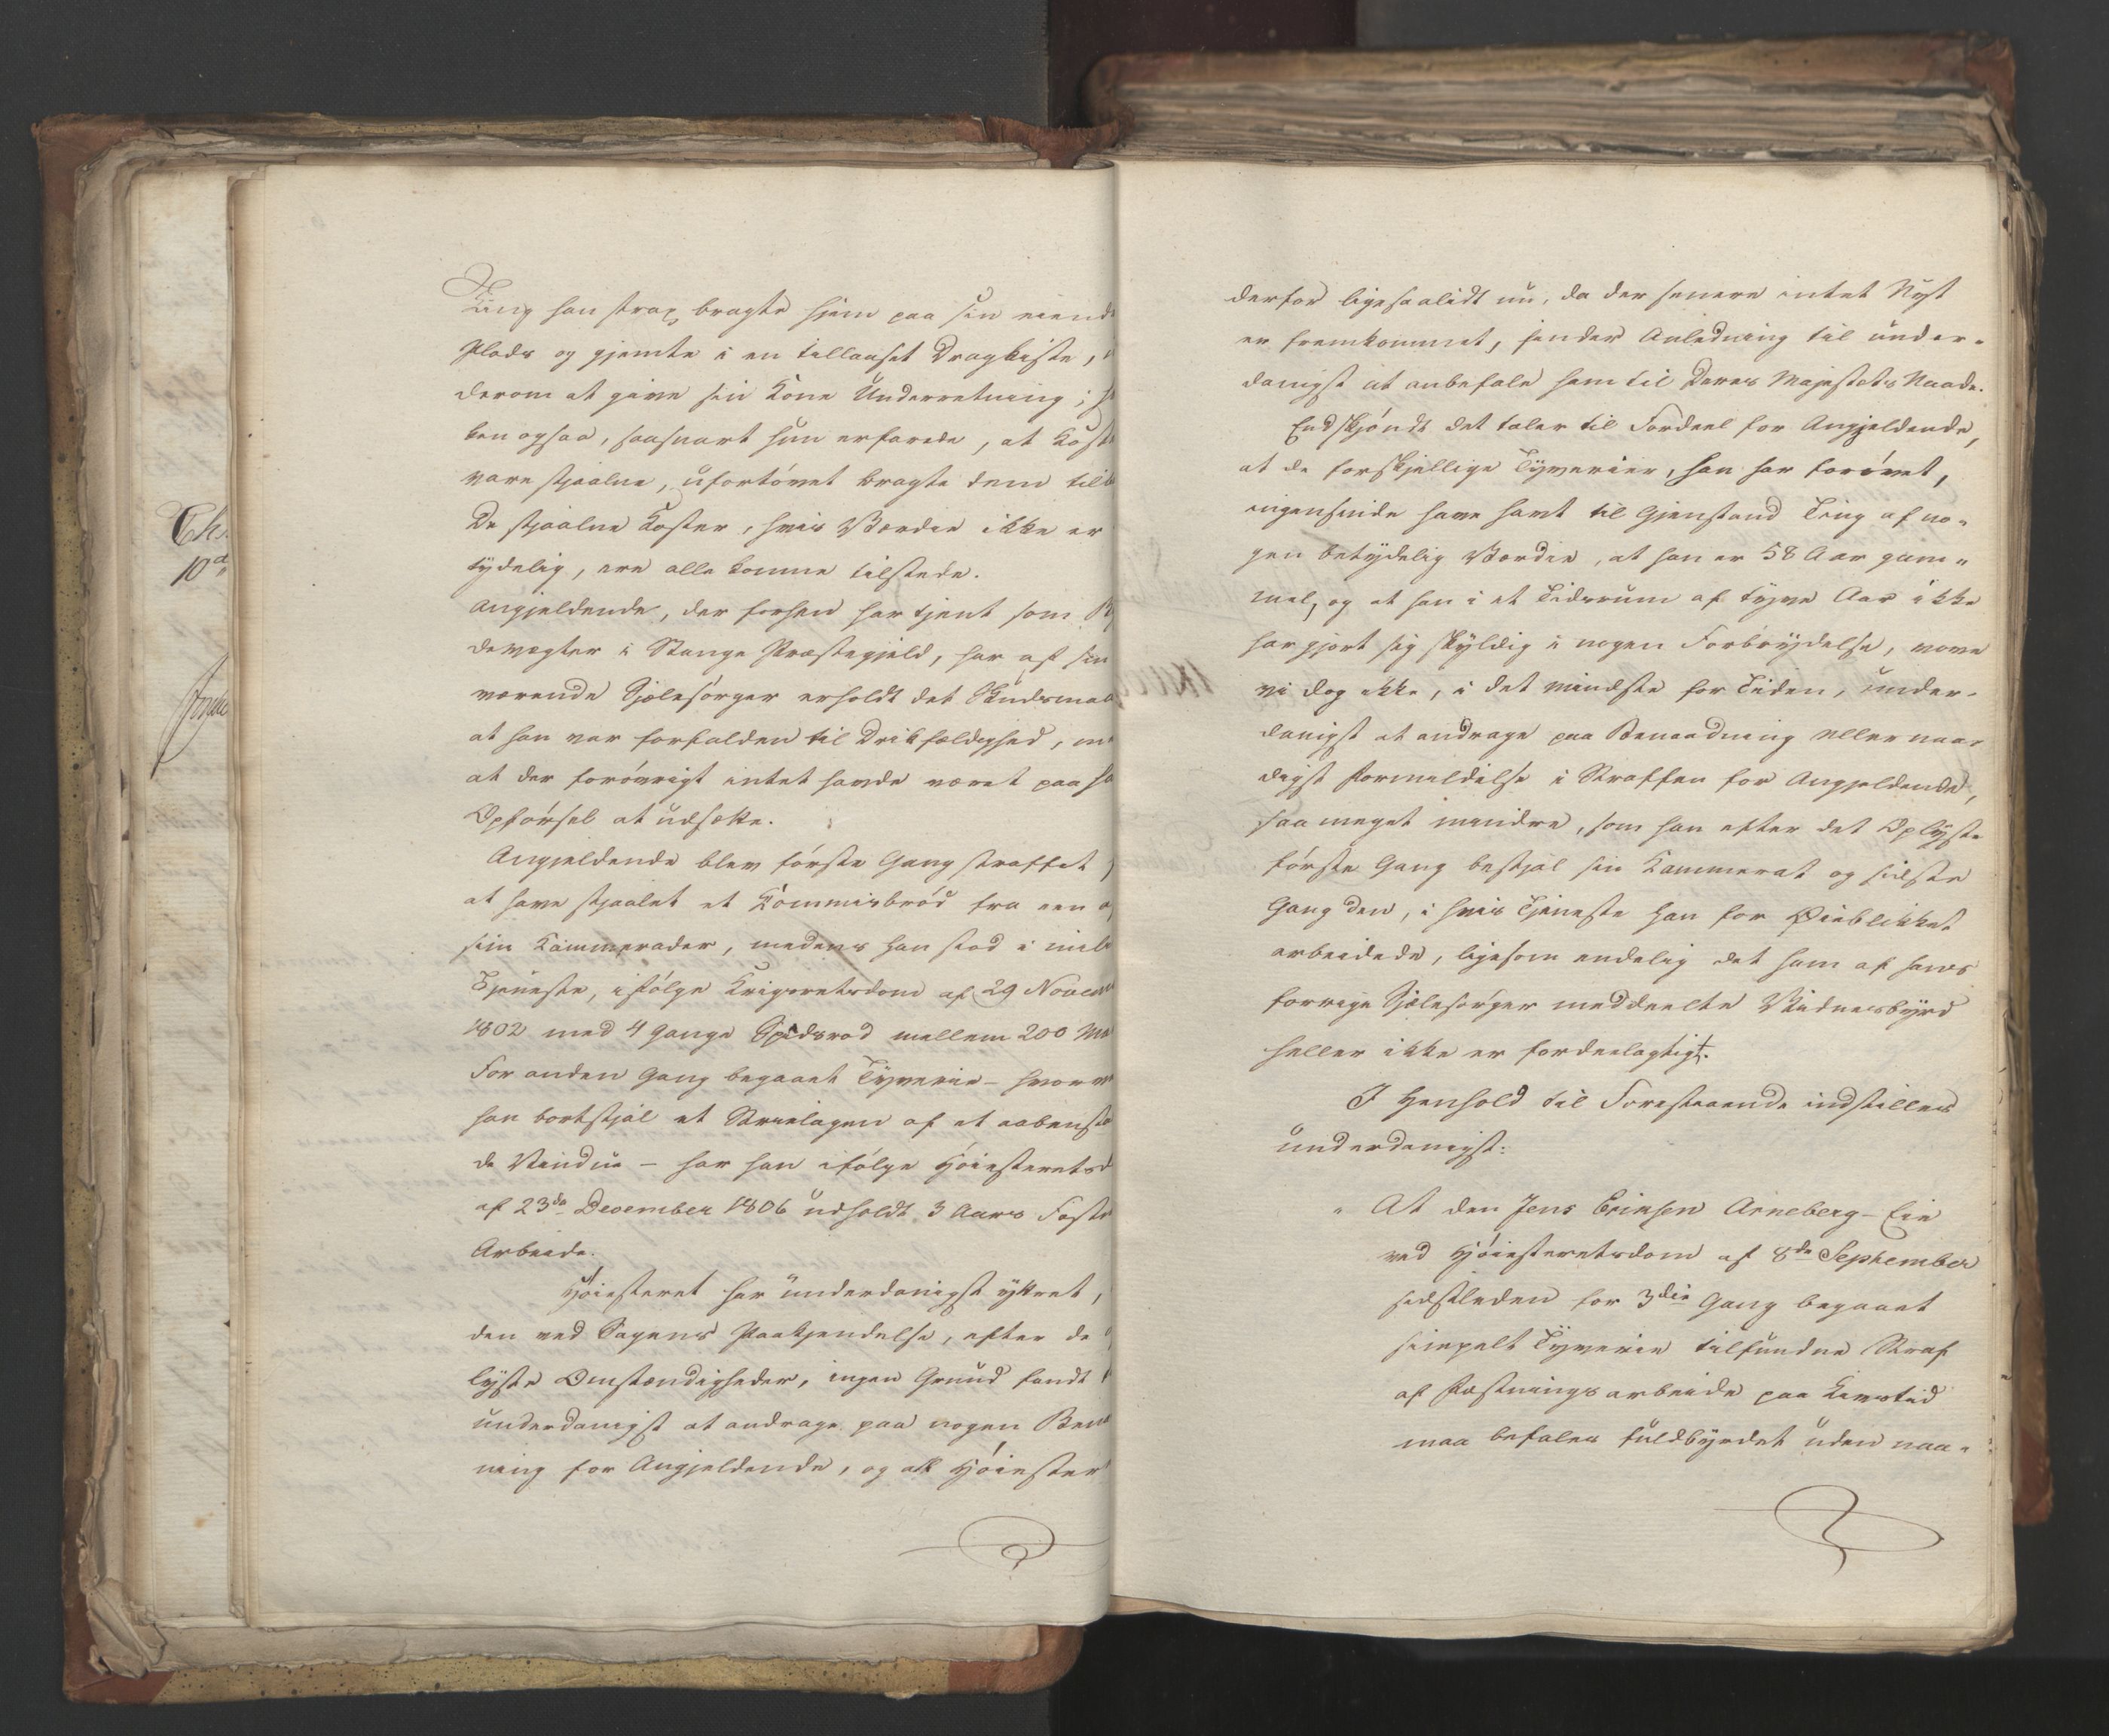 Ting han strax bragte hjem paa sin eiend
Plads og gjemte i en tillaaset Dragkiste,
derom at give sin Kone Underretning; 
ken ogsaa, saasnart hun erfarede, at Kost
vare stjaalne, ufortövet bragte dem tilb
De stjaalne Koster, hvis Værdie ikke er
tydelig, ere alle komne tilstede.
Angjeldende, der forhen har tjent som
devægter i Stange Præstegjeld, har af sin
værende Sjælesörger erholdt det Skudsmaa
at han var forfalden til Drikfældighed, m
at der foröovrigt intet havde været paa ha
Opförsel at udsætte.
Angjeldende blev förste Gang straffet
at have stjaalet et Kommisbröd fra een a
sine Kammerader, medens han stod i mil
Tjeneste, ifölge Krigsretsdom af 29 Novem
1802 med 4 Gange Spidsrod mellem 200 Ma
For anden Gang begaaet Tyverie – hvorv
han bortstjal et Strielagen af et aabenst
de Vindue – har han ifölge Höiesteretsd
af 23de December 1806 udholdt 3 Aars Fæst
Arbeide.
Höiesteret har underdanigst yttret,
den ved Sagens Paakjendelse, efter de
lyste Omstændigheder, ingen Grund fandt
underdanigst at andrage paa nogen Bena
ning for Angjeldende, og att Höiester
derfor ligesaalidt nu, da der senere intet Nyt
er fremkommet, finder Anledning til under-
danigst at anbefale ham til Deres Majestets Naade.
Endskjöndt det taler til Fordeel for Angjeldende,
at de forskjellige Tyverier, han har forövet,
ingensinde have havt til Gjenstand Ting af no-
gen betydelig Værdie, at han er 58 Aar gam-
mel, og at han i et Tidsrum af tyve Aar ikke
har gjort sig skyldig i nogen Forbrydelse, vove
vi dog ikke, i det mindste for Tiden, under-
danigst at andrage paa Benaadning eller naa-
digst Formildelse i Straffen for Angjeldende,
saa meget mindre, som han efter det Oplyste
förste Gang bestjal sin Kammerat og sidste
Gang den, i hvis Tjeneste han for Øieblikket
arbeidede, ligesom endelig det ham af hans
forrige Sjælesörger meddeelte Vidnesbyrd
heller ikke er fordeelagtigt.
I Henhold til Forestaaende indstilles
underdanigst:
" At den Jens Eriksen Arneberg-Eie
ved Höiesteretsdom af 8de September
sidstleden for 3die Gang begaaet
simpelt Tyverie tilfundne Straf
af Fæstningsarbeide paa Livstid
maa befales fuldbyrdet uden naa-